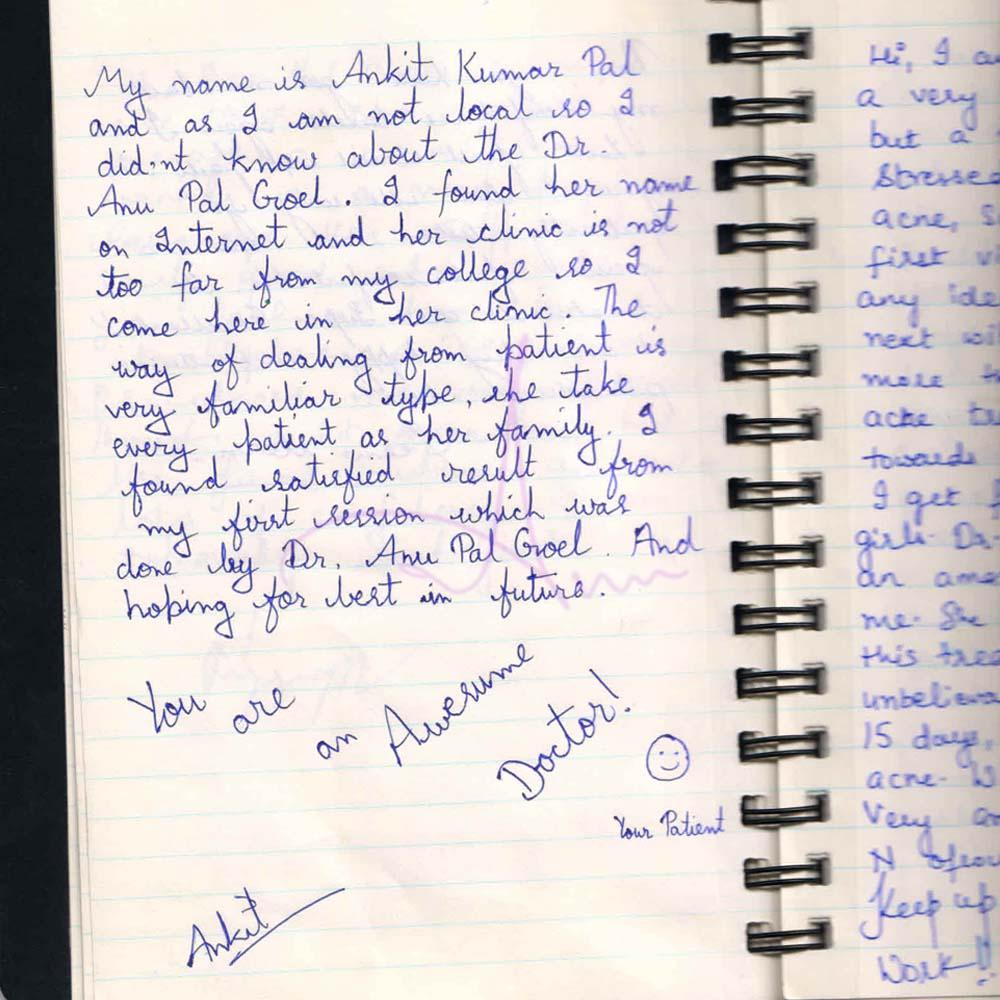 My name is Ankit Kumar Pal
and as I am not local so I
did'nt know about the Dr.
Anu Pal Goel. I found her name
on Internet and her clinic is not
too far from my college so I
come here in her clinic. The
way of dealing from patient is
very familiar type, she take
every patient as her family. I
found satisfied result from
my first session which was
done by Dr. Anu Pal Goel. And
hoping for best in future.
You are
an Awesume
Doctor!
Your Patient
Ankit
Hi, I
a very
but a
Stresse
acne, S
first
any ide
next
more
acne
towards
I get
girls. Dr.
an ama
me. She
this trea
unbelieva
15 days,
acne. W
Very
N
Keep up
Work!!